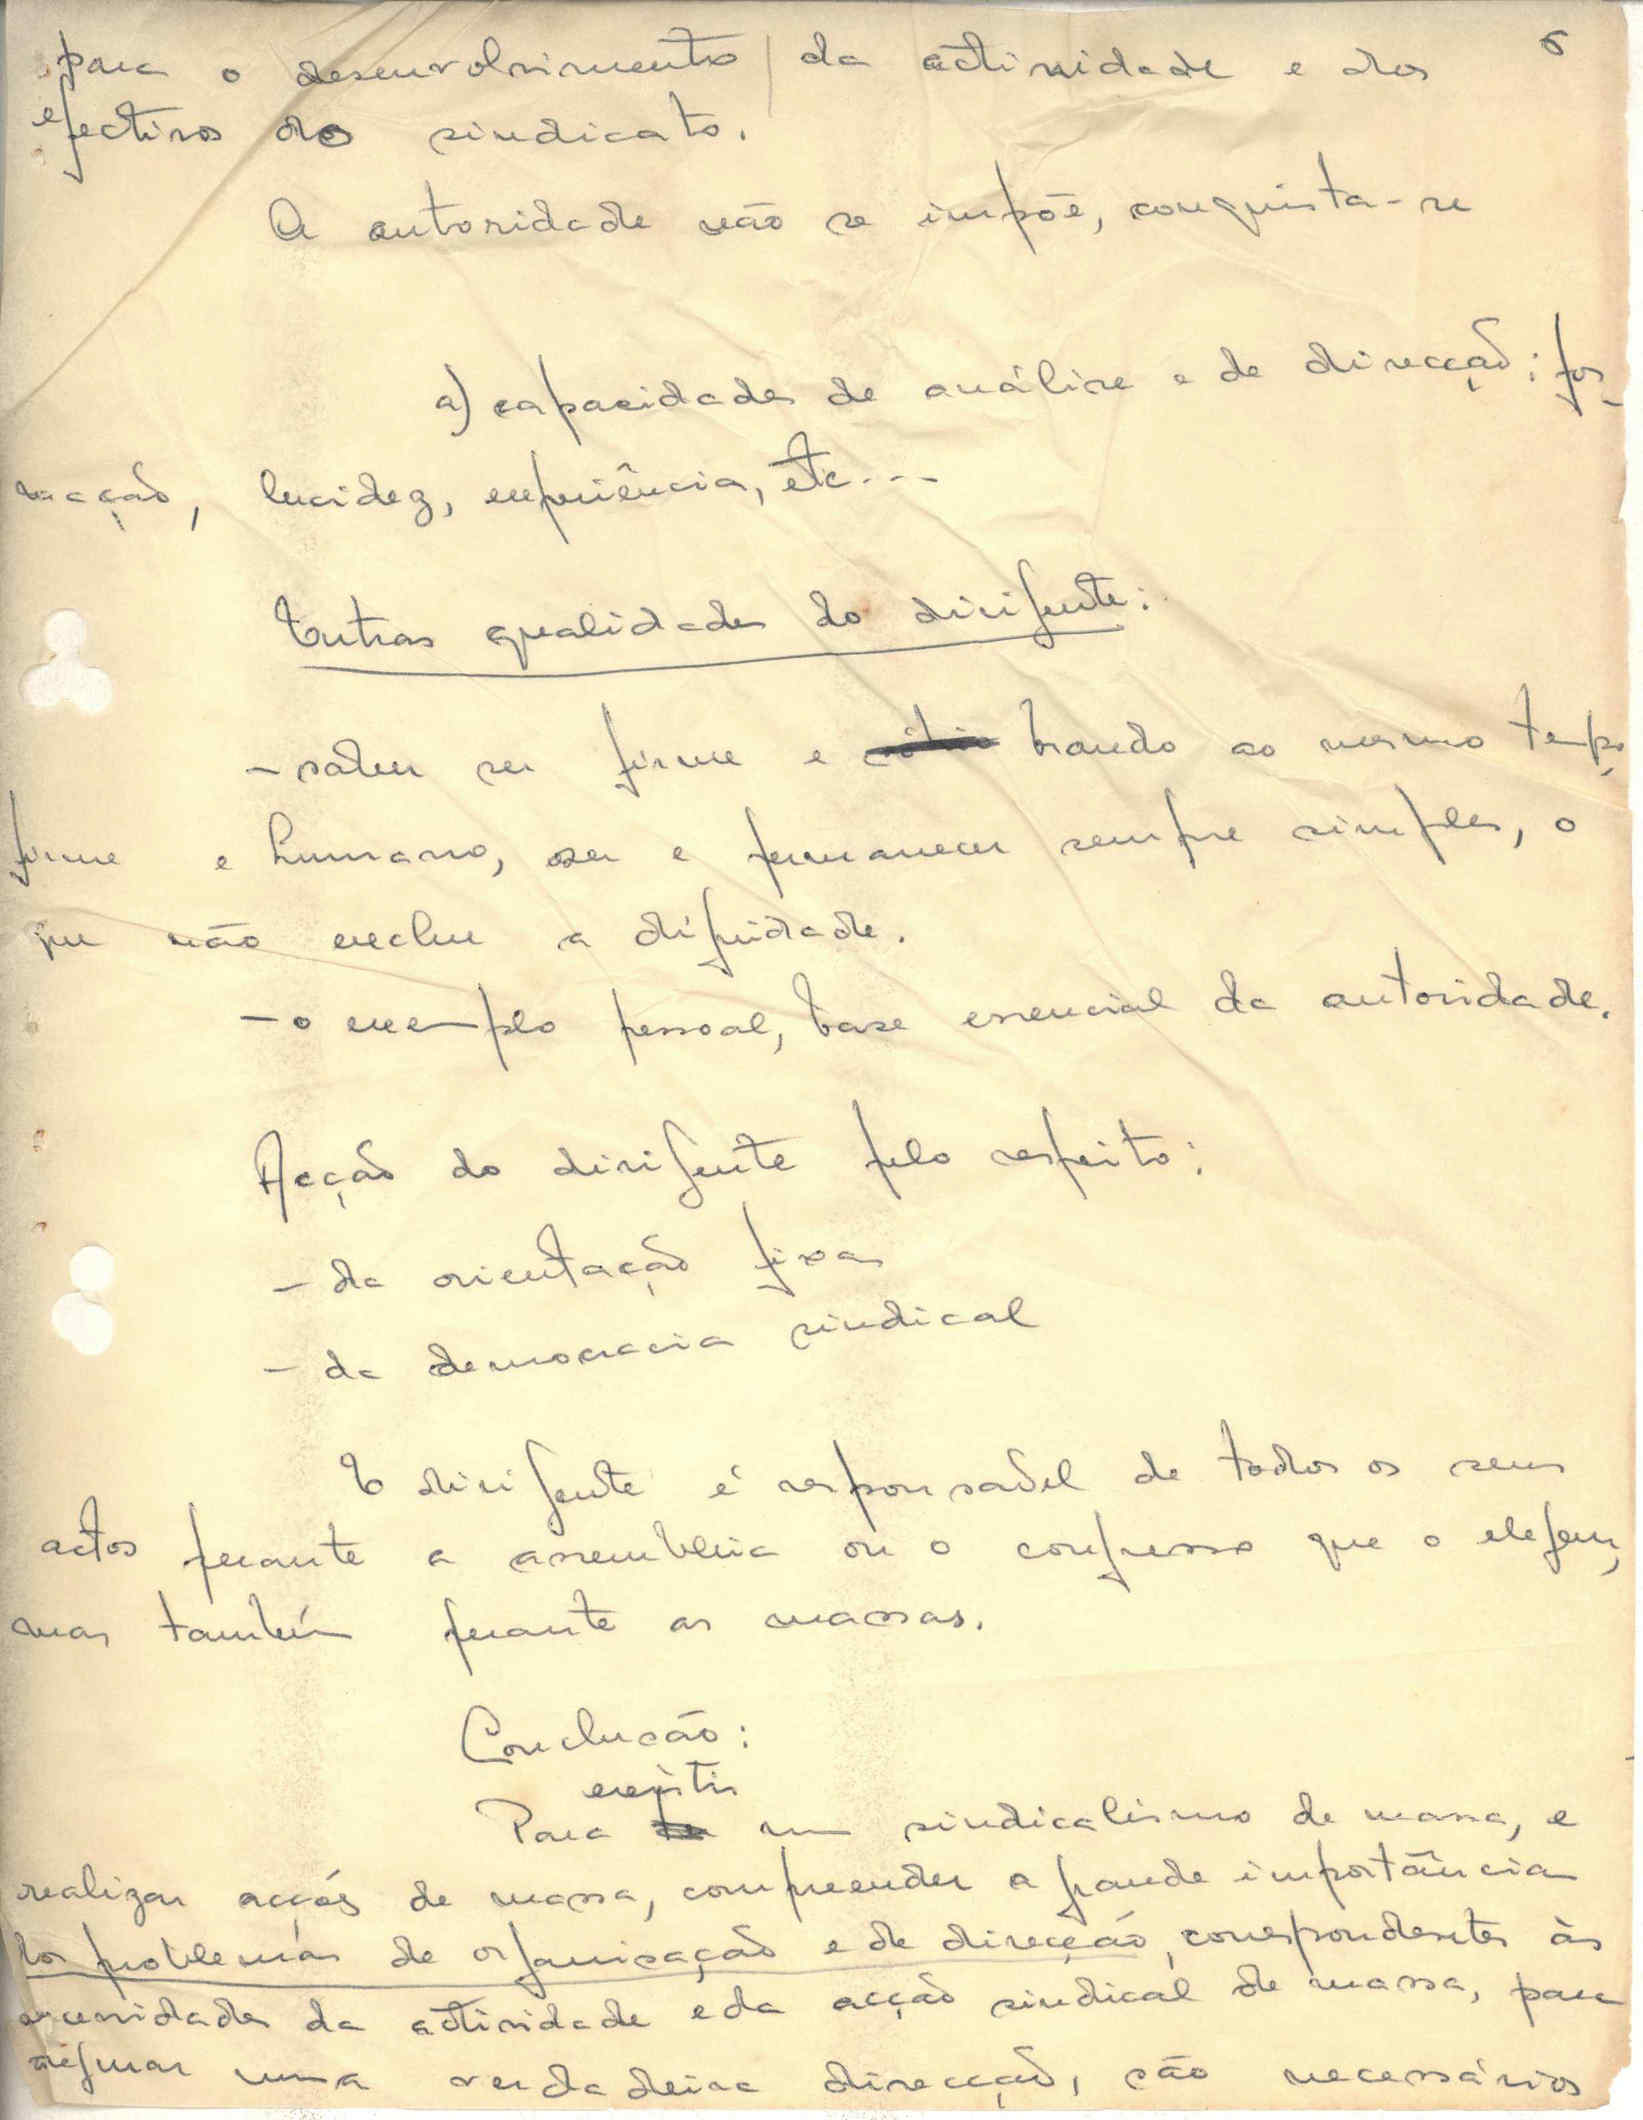 6
para o desenvolvimento da actividade e dos
efectivos do sindicato.
A autoridade não se impõe, conquista-se
a) capacidades de análise e de direcção: for_
mação, lucidez, experiência, etc...
Outras qualidades do dirigente:
- saber ser firme e brando ao mesmo tempo,
firme e humano, ser e permanecer sempre simples, o
que não exclue a dignidade.
- o exemplo pessoal, base essencial da autoridade.
Acção do dirigente pelo respeito:
- da orientação fixa
- da democracia sindical
O dirigente é responsável de todos os seus
actos perante a assembleia ou o congresso que o elegeu,
mas também perante as massas.
Conclusão:
existir
Para um sindicalismo de massa, e
realizar acções de massa, compreender a grande importância
dos problemas de organização e de direcção, correspondentes às
necessidades da actividade e da acção sindical de massa, para
uma verdadeira direcção, são necessários